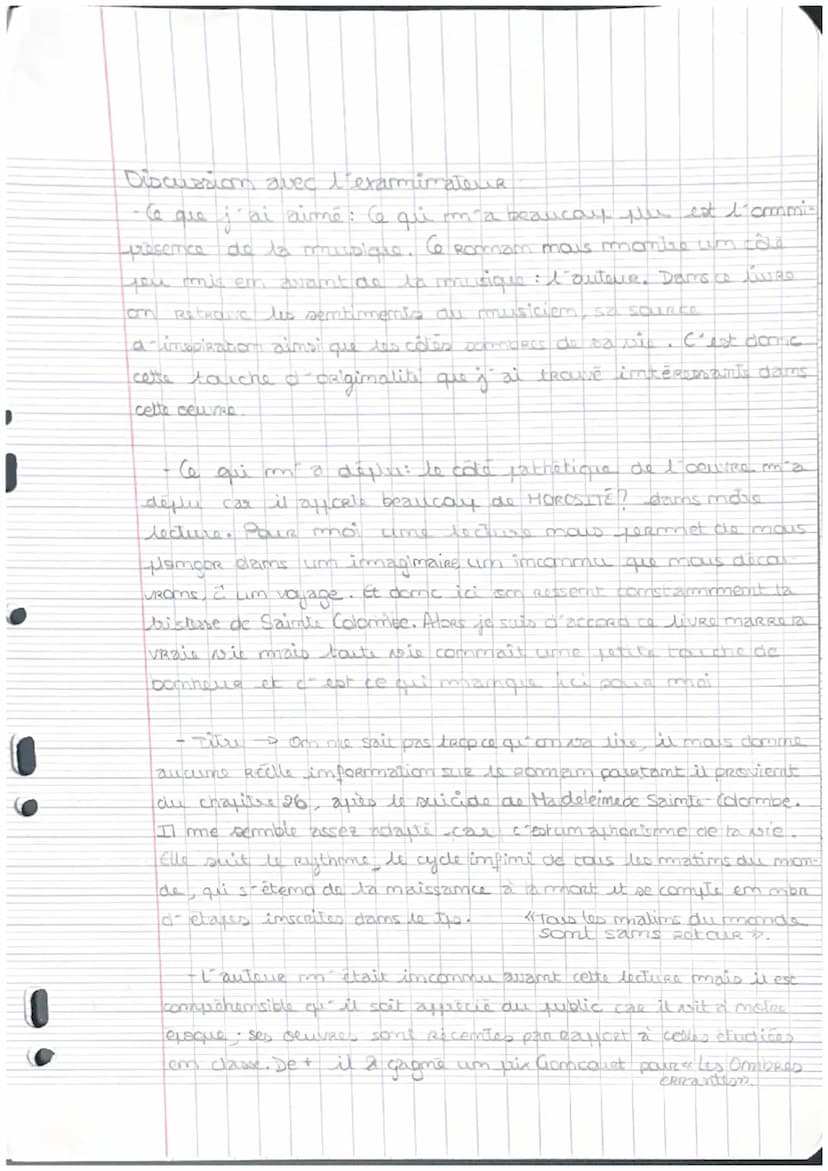 Discussion avec l'examinateur
- Ce que j'ai aimé : Ce qui m'a beaucoup plu est l'omni-
présence de la musique. Ce roman nous montre un côté
peu mis en avant de la musique : l'auteur. Dans ce livre
on retrouve les sentiments du musicien, sa source
d'inspiration ainsi que les côtés sombres de sa vie. C'est donc
cette touche d'originalité que j'ai trouvé intéressante dans
cette oeuvre.
- Ce qui m'a déplu : le côté pathétique de l'oeuvre m'a
déplu car il appelle beaucoup de MOROSITÉ ? dans notre
lecture. Pour moi une lecture nous permet de nous
plonger dans un imaginaire, un inconnu que nous décou-
vrons, à un voyage. Et donc ici on ressent constamment la
tristesse de Sainte Colombe. Alors je suis d'accord ce livre narre la
vraie vie mais toute vie connait une petite touche de
bonheur et c'est ce qui manque ici pour moi
- Titre → On ne sait pas trop ce qu'on va lire, il nous donne
aucune réelle information sur le roman pourtant il provient
du chapitre 26, après le suicide de Madeleine de Sainte-Colombe.
Il me semble assez adapté car c'est un aphorisme de la vie.
Elle suit le rythme, le cycle infini de tous les matins du mon-
de, qui s'étend de la naissance à la mort et se compte en nbr
d'étapes inscrites dans le tps. "Tous les matins du monde
sont sans retour".
- L'auteur m'était inconnu avant cette lecture mais il est
compréhensible qu'il soit apprécié du public car il vit à notre
époque ; ses oeuvres sont récentes par rapport à celles étudiées
en classe. De + il a gagné un prix Goncourt pour "Les Ombres
errantes".